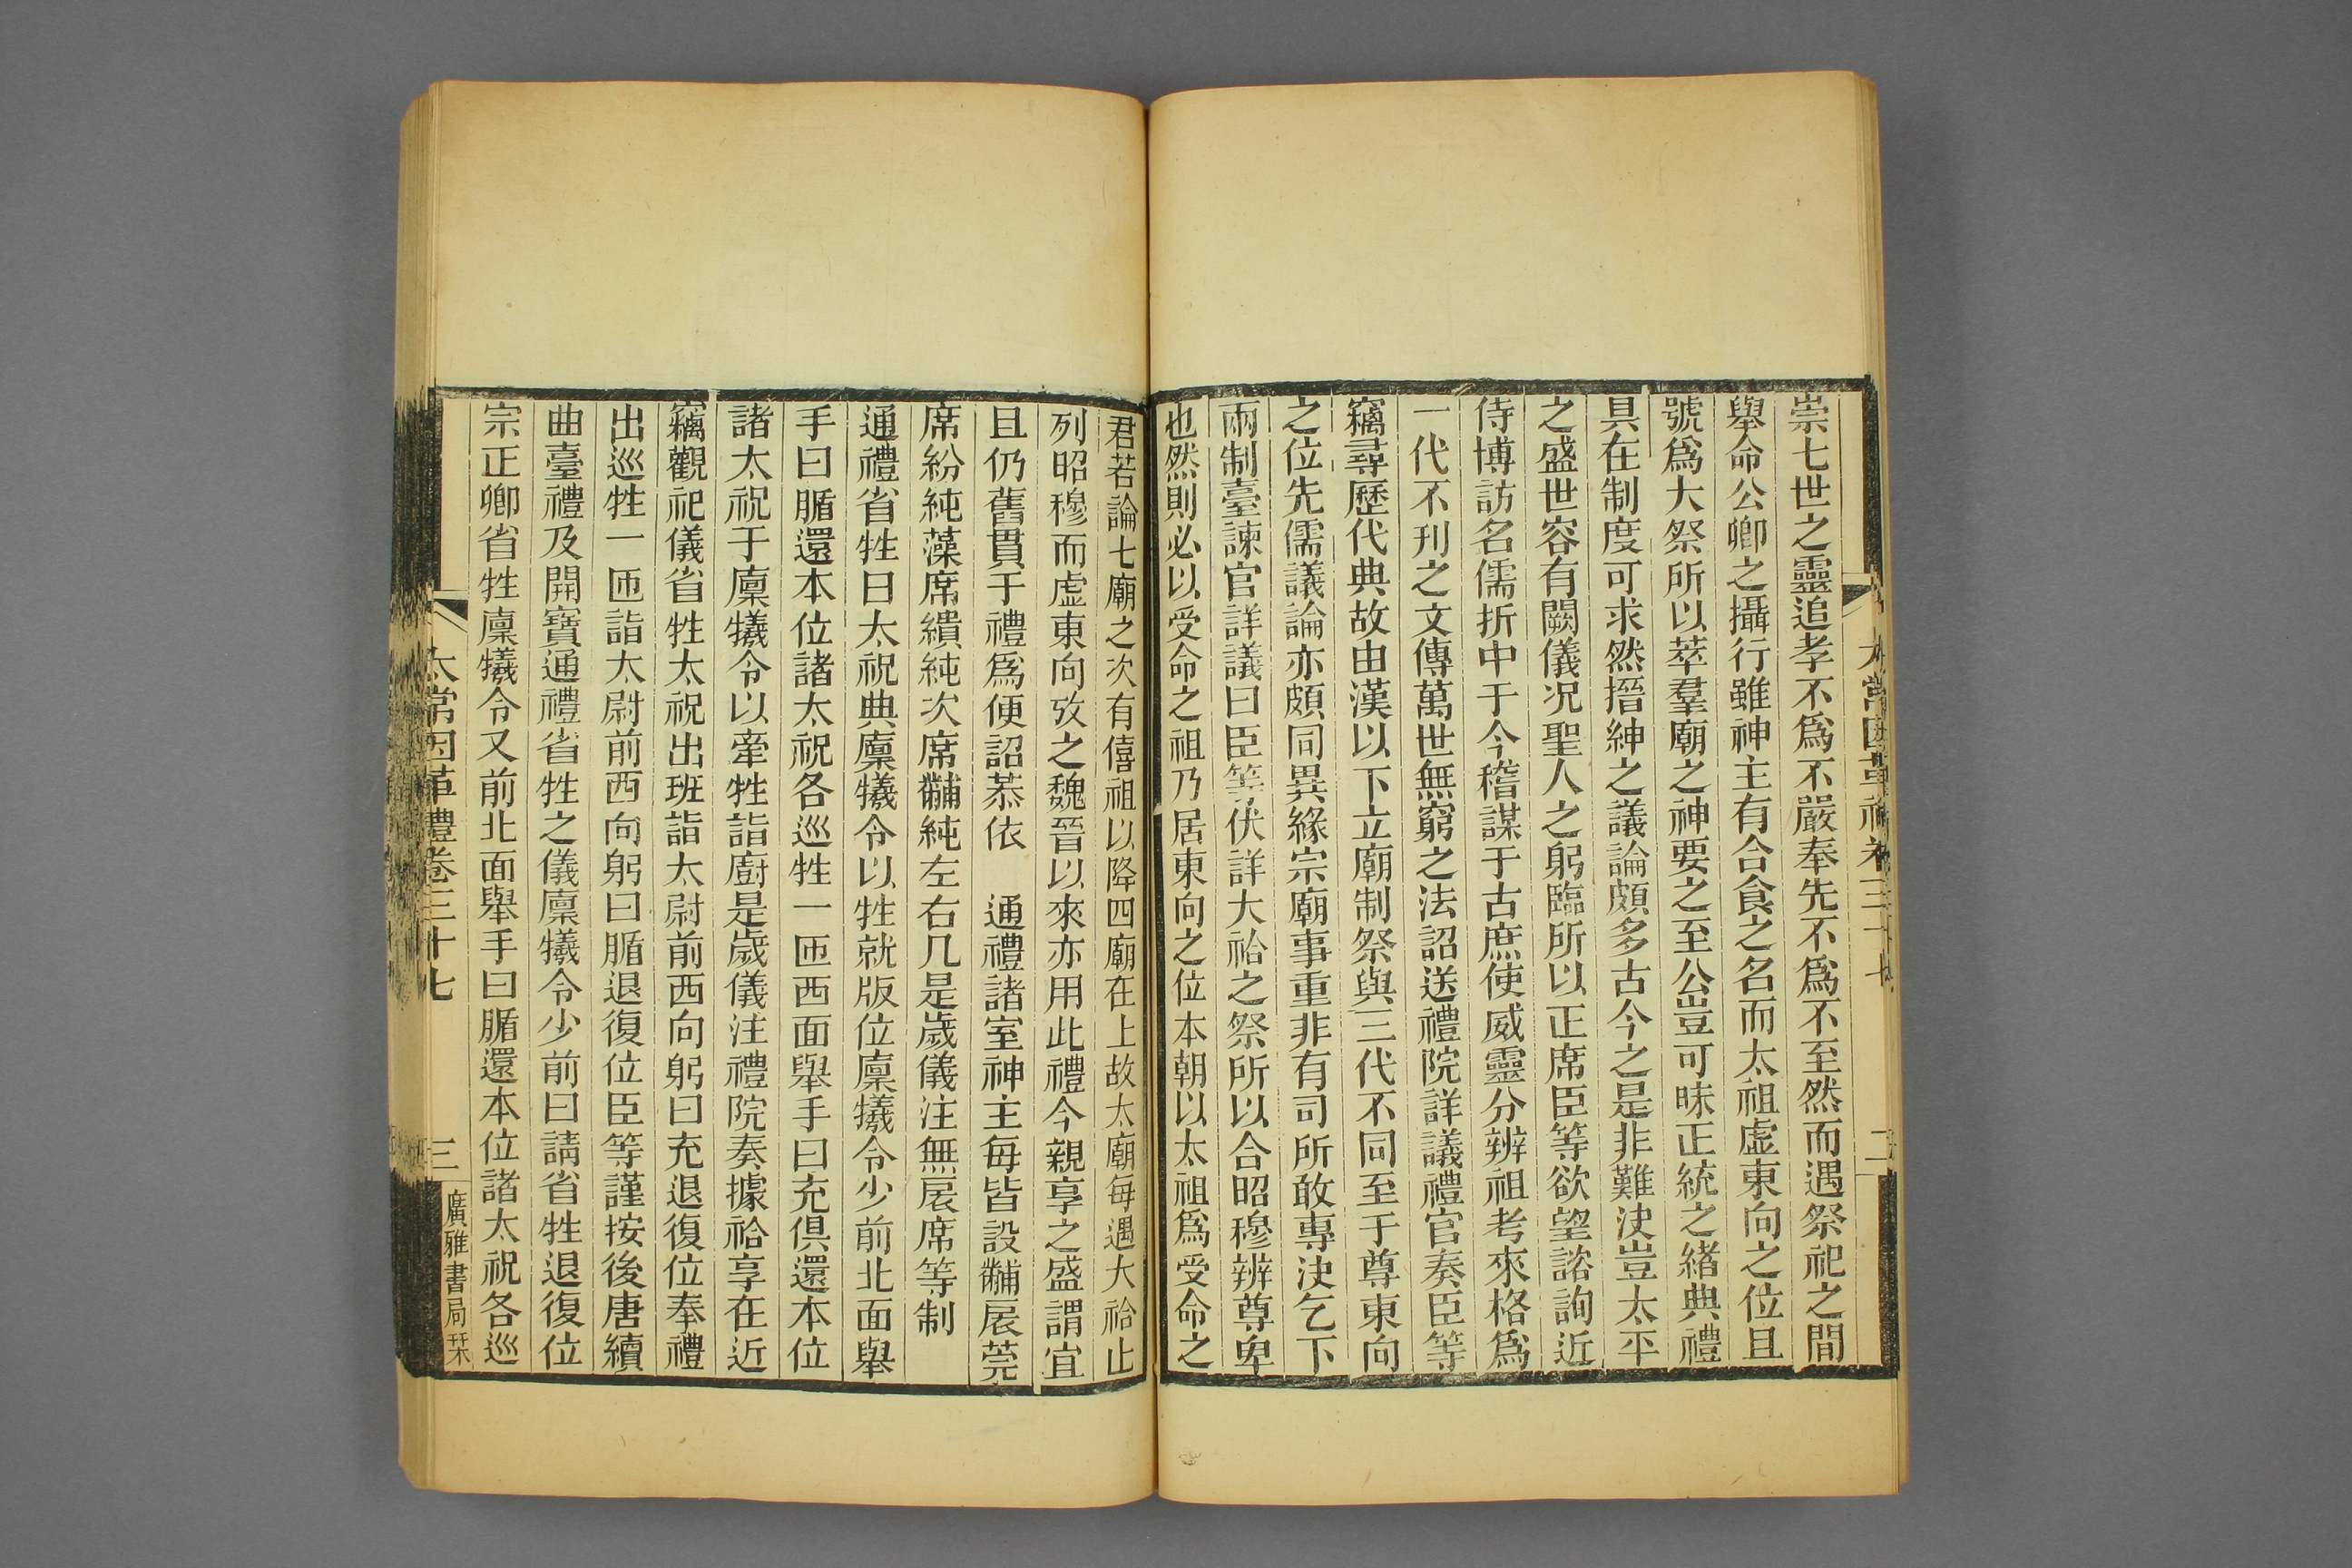 崇七世之靈追孝不爲不嚴奉先不爲不至然而遇祭祀之間
舉命公卿之攝行雖神主有合食之名而太祖虛東向之位且
號爲大祭所以萃羣廟之神要之至公豈可昧正統之緒典禮
具在制度可求然搢紳之議論頗多古今之是非難決豈太平
之盛世容有闕儀况聖人之躬臨所以正席臣等欲望諮詢近
侍博訪名儒折中于今稽謀于古庶使威靈分辨祖考來格爲
一代不刊之文傳萬世無窮之法詔送禮院詳議禮官奏臣等
竊尋歷代典故由漢以下立廟制祭與三代不同至于尊東向
之位先儒議論亦頗同異緣宗廟事重非有司所敢專決乞下
兩制臺諫官詳議曰臣等伏詳大祫之祭所以合昭穆辨尊卑
也然則必以受命之祖乃居東向之位本朝以太祖爲受命之
君若論七廟之次有僖祖以降四廟在上故太廟每遇大祫止
列昭穆而虛東向攷之魏晉以來亦用此禮今親享之盛謂宜
且仍舊貫于禮爲便詔恭依　通禮諸室神主每皆設黼扆莞
席紛純藻席繢純次席黼純左右几是歲儀注無扆席等制
通禮省牲日太祝典廩犧令以牲就版位廩犧令少前北面舉
手曰腯還本位諸太祝各巡牲一匝西面舉手曰充俱還本位
諸太祝于廩犧令以牽牲詣廚是歲儀注禮院奏據祫享在近
竊觀祀儀省牲太祝出班詣太尉前西向躬曰充退復位奉禮
出巡牲一匝詣太尉前西向躬曰腯退復位臣等謹按後唐續
曲臺禮及開寶通禮省牲之儀廩犧令少前曰請省牲退復位
宗正卿省牲廩犧令又前北面舉手曰腯還本位諸太祝各巡
太常因革禮卷三十七
三
廣雅書局栞